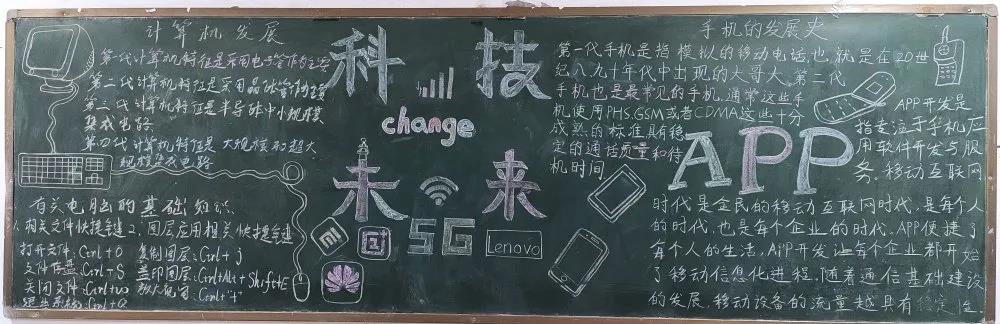 计算机发展
第一代计算机特征是采用电子管作为主要
第二代计算机特征是采用晶体管作为主要
第三代计算机特征是半导体中小规模
集成电路
第四代计算机特征是大规模和超大
规模集成电路
有关电脑的基础知识
1、相关文件快捷键 2、图层应用相关快捷键
打开文件:Crrl+O 复制图层:Crrl+j
Crrl+S 盖印图层:Crrl+Alt+Shift+E
关闭文件:Crrl+w
科技
change
未来
5G
Lenovo
手机的发展史
第一代手机是指模拟的移动电话,也就是在20世
纪八九十年代中出现的大哥大。第二代
手机也是最常见的手机,通常这些手
机使用PHS.GSM或者CDMA这些十分
成熟的标准,具有稳
定的通话质量和待
机时间
APP
APP开发是
指专注于手机应
用软件开发与服
务。移动互联网
时代是全民的移动互联网时代,是每个人
的时代,也是每个企业的时代,APP便捷了
每个人的生活,APP开发让每个企业都开始
了移动信息化进程,随着通信基础建设
的发展,移动设备的流量越具有稳定性。